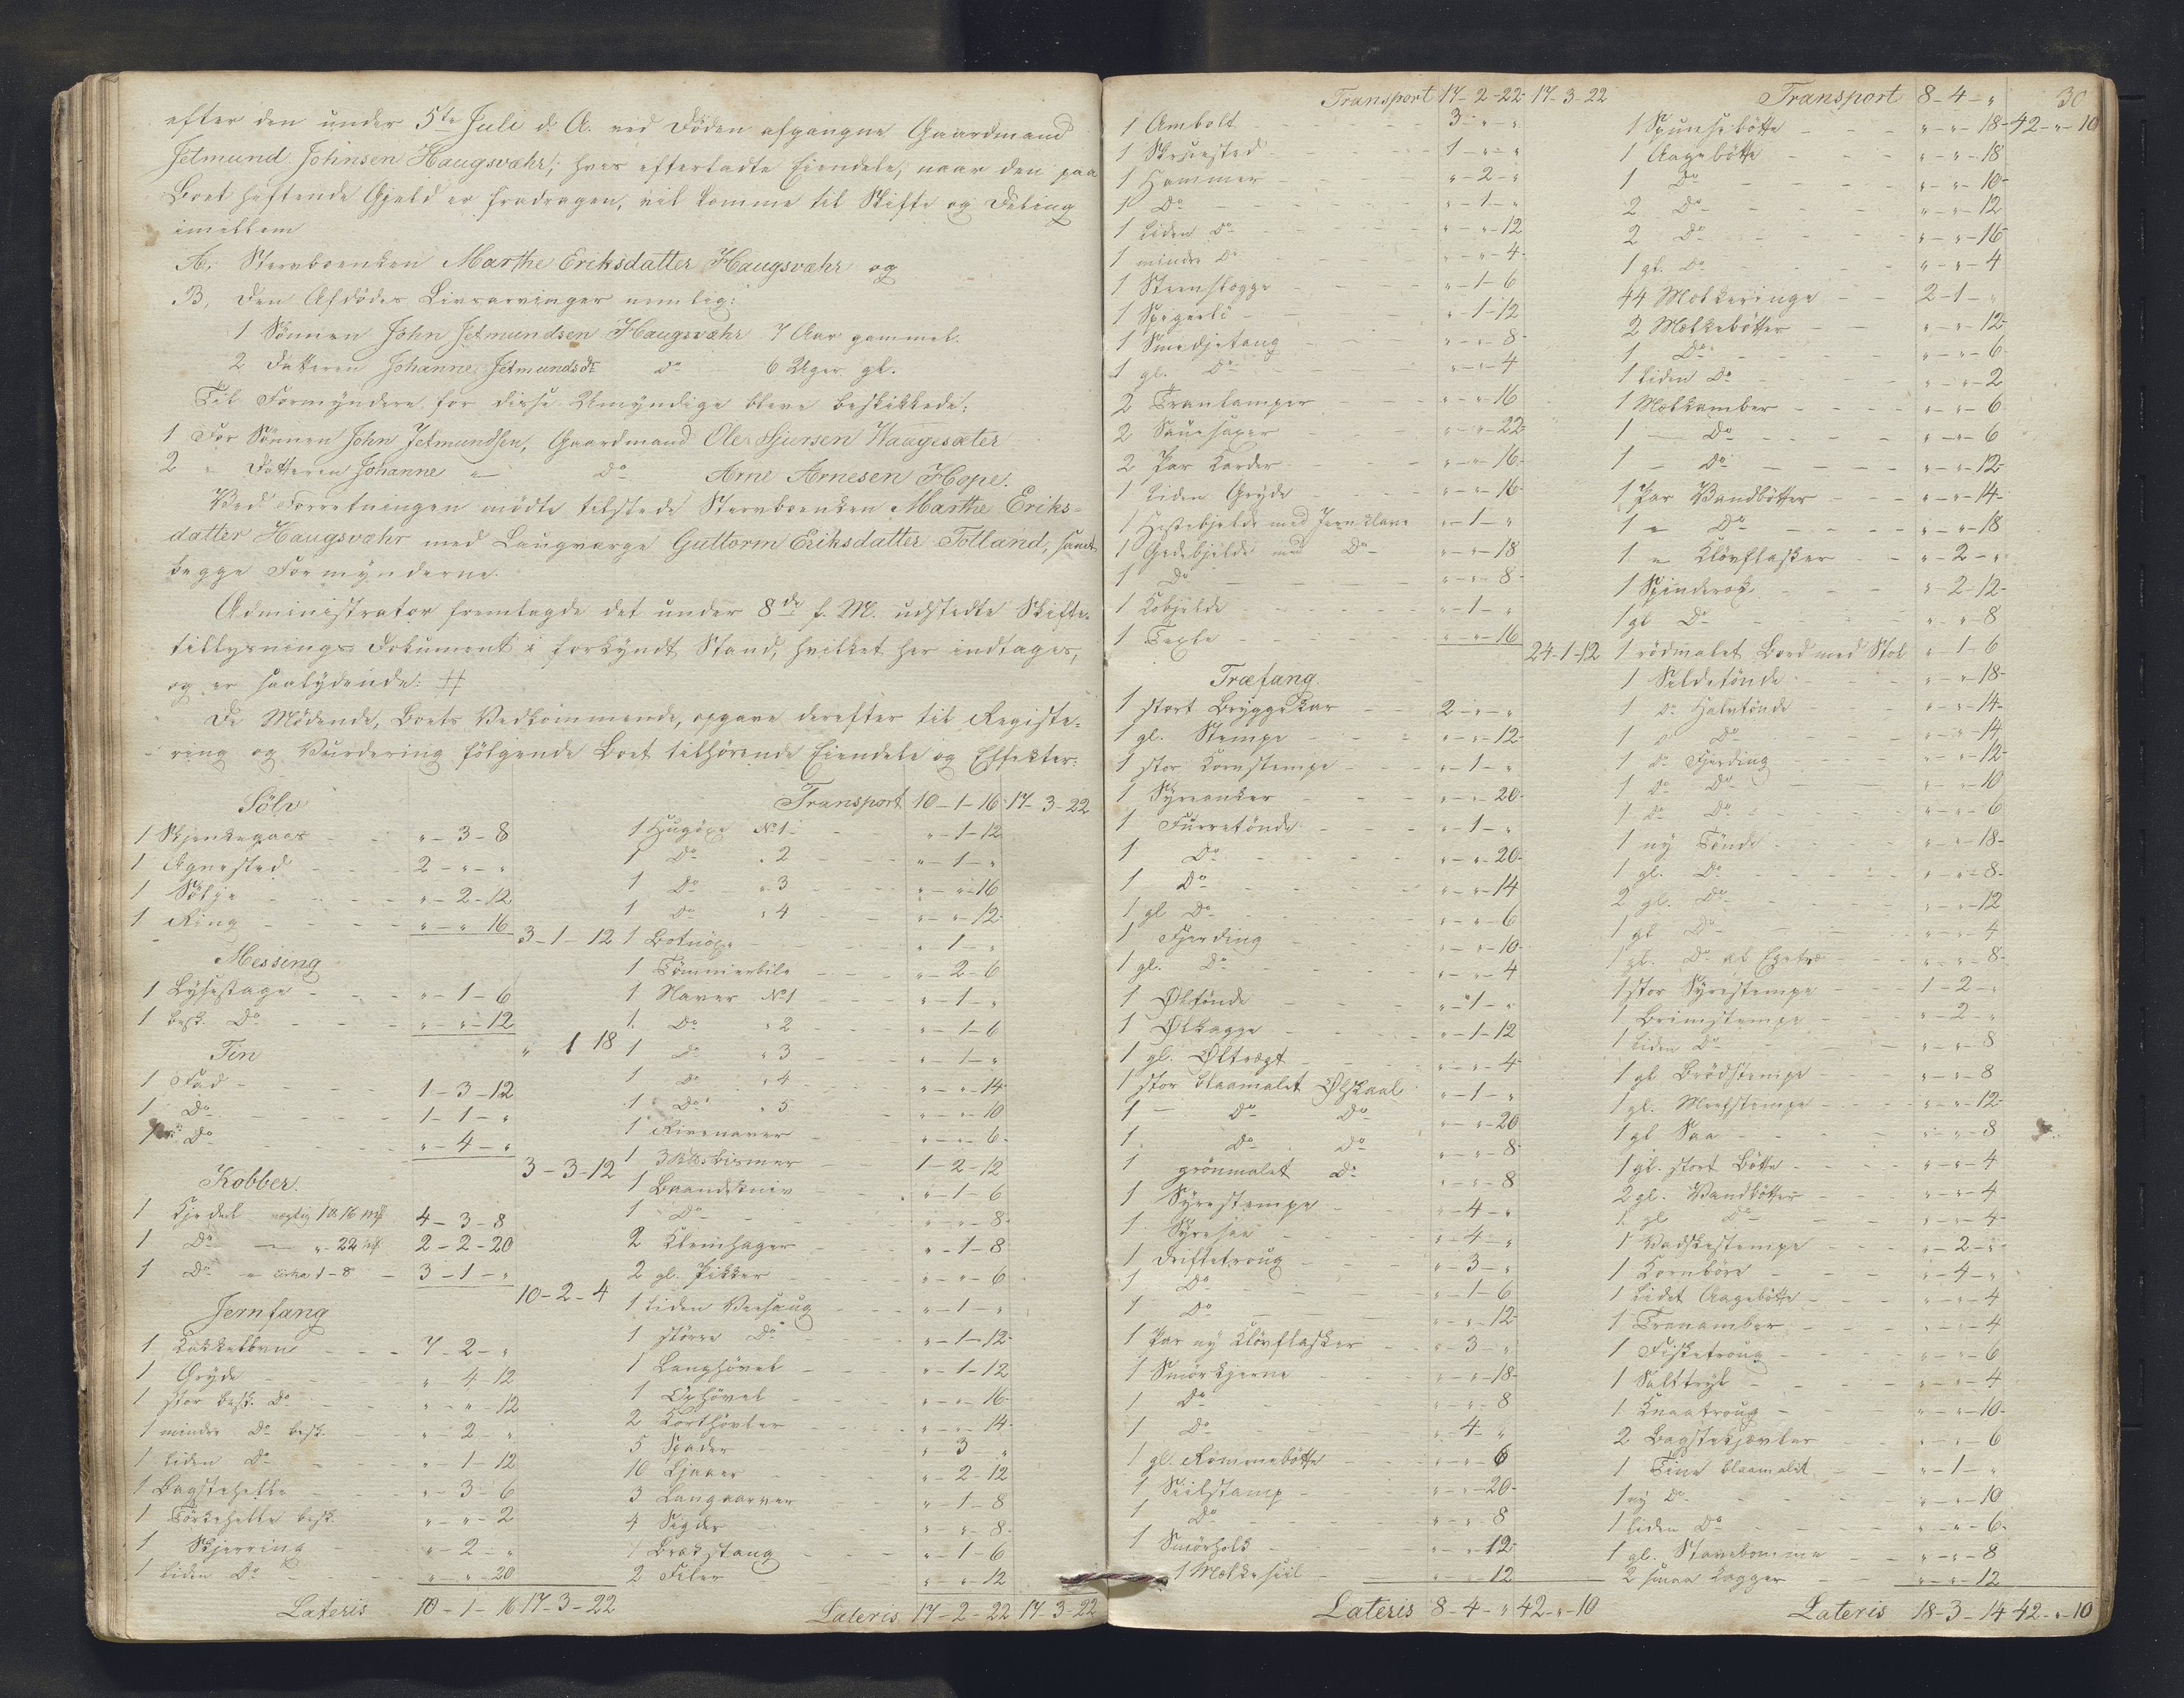 efter den under 5te Juli d. A. ved Døden afgangne Gaardmand
Jetmund Johnsen Haugsvæhr; hvis efterladte Eiendele, naar den paa
Boet heftende Gjæld er fradragen, vil komme til Skifte og Deling
imellem
A, Stervboenken Marthe Eriksdatter Haugsvæhr og
B, den Afdødes Livsarvinger nemlig:
1 Sønnen John Jetmundsen Haugsvæhr 7 Aar gammel.
2 Datteren Johanne Jetmundsdr do 6 Uger gl.
Til Formyndere for disse Umyndige bleve beskikkede:
1 For Sønnen John Jetmundsen, Gaardmand Ole Sjursen Haugesæter
2 " Datteren Johanne " do Arne Arnesen Hope.
Ved Forretningen mødte tilstede Stervboenken Marthe Eriks-
datter Haugsvæhr med Laugværge Guttorm Eriksdatter Totland, samt
begge Formynderne.
Administrator fremlagde det under 8de f. M. udstedte Skifte-
tillysnings Dokument i forkyndt Stand, hvilket her indtages,
og er saalydende: #
De Mødende, Boets Vedkommende, opgave derefter til Registe-
ring og Vurdering følgende Boet tilhørende Eiendele og Effekter:
Sølv
1 Skjenkegaas " - 3 - 8
1 Agnested 2 - " - "
1 Sølje " - 2 - 12
1 Ring " - " 16 3 - 1 - 12
Messing
1 Lysestage " - 1 - 6
1 besk. Do " - " - 12 " 1 18
Tin
1 Fad 1 - 3 - 12
1 Do 1 - 1 - "
1 Do " - 4 - " 3 - 3 - 12
Kobber.
1 Kjedel vægtig 1 B 16 mk 4 - 3 - 8
1 Do " - 22 mk 2 - 2 - 20
1 Do " cirka 1 - 8 3 - 1 - " 10 - 2 - 4
Jernfang
1 Kakkelovn 7 - 2 - "
1 Gryde " 4 12
1 stor besk. Do " - " - 12
1 mindre Do besk. " - 2 - "
1 liden Do " - 1 - 12
1 Bagstehelle " - 3 - 6
1 Tørkehelle besk. " - " - 2
1 Skjerring " - 2 - "
1 liden Do " - " - 20
Lateris 10 - 1 - 16 17 - 3 - 22
Transport 10 - 1 - 16 17 - 3 - 22
1 Hugøxe No 1 " - 1 - 12
1 Do " 2 " - 1 - "
1 Do " 3 " - " - 16
1 Do " 4 " - " - 12
1 Botnøxe " - 1 - "
1 Tømmerbile " - 2 - 6
1 Naver No 1 " - 1 - "
1 Do " 2 " - 1 - 6
1 Do " 3 " - 1 - "
1 Do " 4 " - " - 14
1 Do " 5 " - " - 10
1 Rivenaver " - " - 6
1 3 B. Bismer 1 - 2 - 12
1 Baandekniv " - 1 - 6
1 Do " - " - 8
2 Kleinhager " - 1 - 8
2 gl. Pikker " - " - 6
1 liden Veesaug " - 1 - "
1 større Do " - 1 - 12
1 Langhøvel " - 1 - 12
1 Ophøvel " - " - 16
2 Korthøvler " - " - 14
5 Spader " - 3 "
10 Ljaaer " - 2 - 12
3 Langaarver " - 1 - 8
4 Sigder " - " - 8
1 Brækstang " - 1 - 6
2 Filer " - " - 12
Lateris 17 - 2 - 22 17 - 3 - 22
Transport 17 - 2 - 22 17 - 3 - 22
1 Ambolt 3 - " - "
1 Skruested 1 - " - "
1 Hammer " - 2 - "
1 Do " - 1 - "
1 liden Do " - " - 12
1 mindre Do " - " - 4
1 Steenslegge " - 1 - 6
1 " - 1 - 12
1 Smedjetang " - " - 8
1 gl. Do " - " - 4
2 Tranlamper " - " - 16
2 Sauesaxer " - " - 22
2 Par Karder " - " - 16
1 liden Gryde " - " - 16
1 Hestebjelde med Jernklave " - 1 - "
1 Gedebjelde med Do " - " - 18
1 Do " - " - 8
1 Kobjelde " - 1 - "
1 Texle " - " - 16 24 - 1 - 12
Træfang.
1 stort Bryggekar 2 - " - "
1 gl. Stempe " - " - 12
1 stor Kornstempe " - 1 - "
1 Syreanker " - " - 20
1 Furretønde " - 1 - "
1 Do " - " - 20
1 Do " - " - 14
1 gl Do " - " - 6
1 Fjerding " - " - 10
1 gl. Do " - " - 4
1 Øltønde " - 1 - "
1 Ølkagge " - 1 - 12
1 gl. Øltragt " - " - 4
1 stor blaamalet Ølskaal " - 1 - "
1 - Do Do " - " - 20
1 Do Do " - " - 8
1 grønmalet Do " - " - 8
1 Syrestempe " - 4 - "
1 Syresaa " - 4 - "
1 Driftetroug " - 3 - "
1 Do " - 1 - 6
1 Do " - " - 12
1 Par ny Kløvflasker " - 3 - "
1 Smørkjerne " - " - 18
1 Do " - " - 8
1 Do " - 4 - "
1 gl. Rømmebøtte " - " - 6
1 Siilstamp " - " - 20
1 Do " - " - 8
1 Smørholk " - " - 12
1 Melkesiil " - " - 12
Lateris 8 - 4 - " 42 - " - 10
Transport 8 - 4 - " 30
1 Spunsebøtte " - " - 18 42 - " - 10
1 Aagebøtte " - " - 18
1 Do " - " - 10
2 Do " - " - 12
2 Do " - " - 16
1 gl. Do " - " - 4
44 Melkeringe 2 - 1 - "
2 Melkebøtter " - " - 12
1 Do " - " - 6
1 liden Do " - " - 2
1 Melkamber " - " - 6
1 Do " - " - 6
1 - Do " - " - 12
1 Par Vandbøtter " - " - 14
1 " Do " - " - 18
1 " Kløvflasker " - 2 - "
1 Spinderok " - 2 - 12
1 gl Do " - " - 8
1 rødmalet Bord med Stol " - 1 - 6
1 Sildetønde " - " - 18
1 Do Halvtønde " - " - 14
1 " Do " - " - 14
1 Do Fjerding " - " - 12
1 Do Do " - " - 10
1 Do Do " - " - 6
1 ny Tønde " - " - 18
1 gl. Do " - " - 8
2 gl. Do " - " - 12
1 gl Do " - " - 4
1 gl. Do af Egetræ " - " - 8
1 stor Syrestempe 1 - 2 - "
1 Brimstempe " - 2 - "
1 liden Do " - " - 8
1 gl Brødstempe " - " - 8
1 gl. Meelstempe " - " - 12
1 gl Saa " - " - 8
1 gl. stort Bøtte " - " - 4
2 gl. Vandbøtter " - " - 4
1 gl Do " - " - 4
1 Vadskestempe " - 2 - "
1 Kornbøre " - 4 - "
1 lidet Aagebøtte " - " - 4
1 Tranamber " - " - 4
1 Fisketroug " - " - 6
1 " - " - 4
1 Knaatroug " - " - 10
2 Bagstekjevler " - " - 6
1 Tine blaamalet " - 1 - "
1 ny Do " - " - 10
1 liden Do " - " - 6
1 gl. Stavebomme " - " - 8
2 smaa Kagger " - " - 12
Lateris 18 - 3 - 14 42 - " - 10